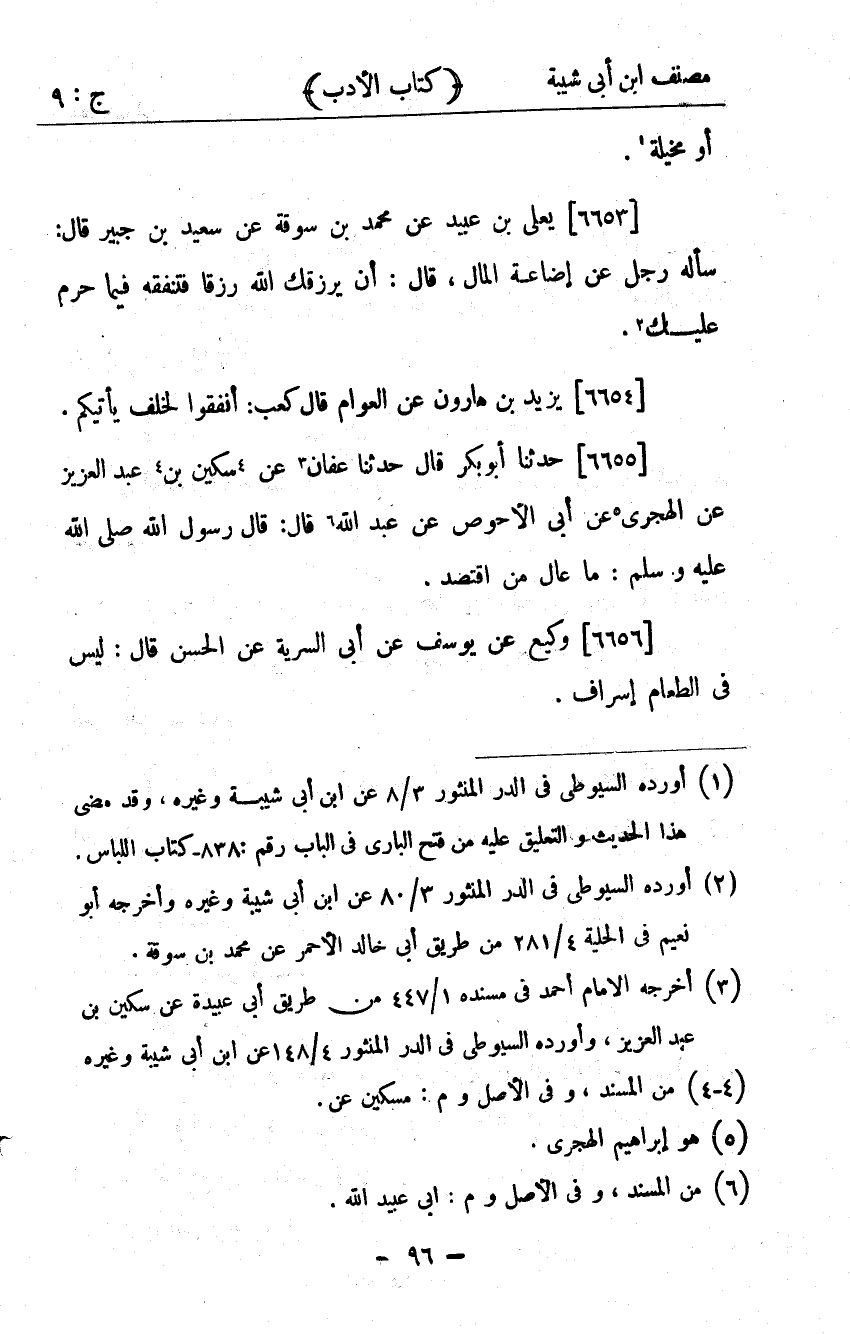 مصنف ابن أبى شيبة ﴿كتاب الأدب﴾ ج : ٩
أو مخيلة١ .
[٦٦٥٣] يعلى بن عبيد عن محمد بن سوقة عن سعيد بن جبير قال:
سأله رجل عن إضاعة المال ، قال : أن يرزقك الله رزقا فتنفقه فيما حرم
عليـــك٢ .
[٦٦٥٤] يزيد بن هارون عن العوام قال كعب: أنفقوا لخلف يأتيكم .
[٦٦٥٥] حدثنا أبوبكر قال حدثنا عفان٣ عن ٤سكين بن٤ عبد العزيز
عن الهجرى٥عن أبى الأحوص عن عبد الله٦ قال: قال رسول الله صلى الله
عليه و سلم : ما عال من اقتصد .
[٦٦٥٦] وكيع عن يوسف عن أبى السرية عن الحسن قال : ليس
فى الطعام إسراف .
(١) أورده السيوطى فى الدر المنثور ٨/٣ عن ابن أبى شيبــة وغيره ، وقد مضى
هذا الحديث و التعليق عليه من فتح البارى فى الباب رقم :٨٣٨-كتاب اللباس .
(٢) أورده السيوطى فى الدر المنثور ٨٠/٣ عن ابن أبى شيبة وغيره وأخرجه أبو
نعيم فى الحلية ٢٨١/٤ من طريق أبى خالد الأحمر عن محمد بن سوقة .
(٣) أخرجه الامام أحمد فى مسنده ٤٤٧/١ من طريق أبى عبيدة عن سكين بن
عبد العزيز ، وأورده السيوطى فى الدر المنثور ١٤٨/٤عن ابن أبى شيبة وغيره
(٤-٤) من المسند ، و فى الأصل و م : مسكين عن .
(٥) هو إبراهيم الهجرى .
(٦) من المسند ، و فى الأصل و م : ابى عبيد الله .
- ٩٦ -